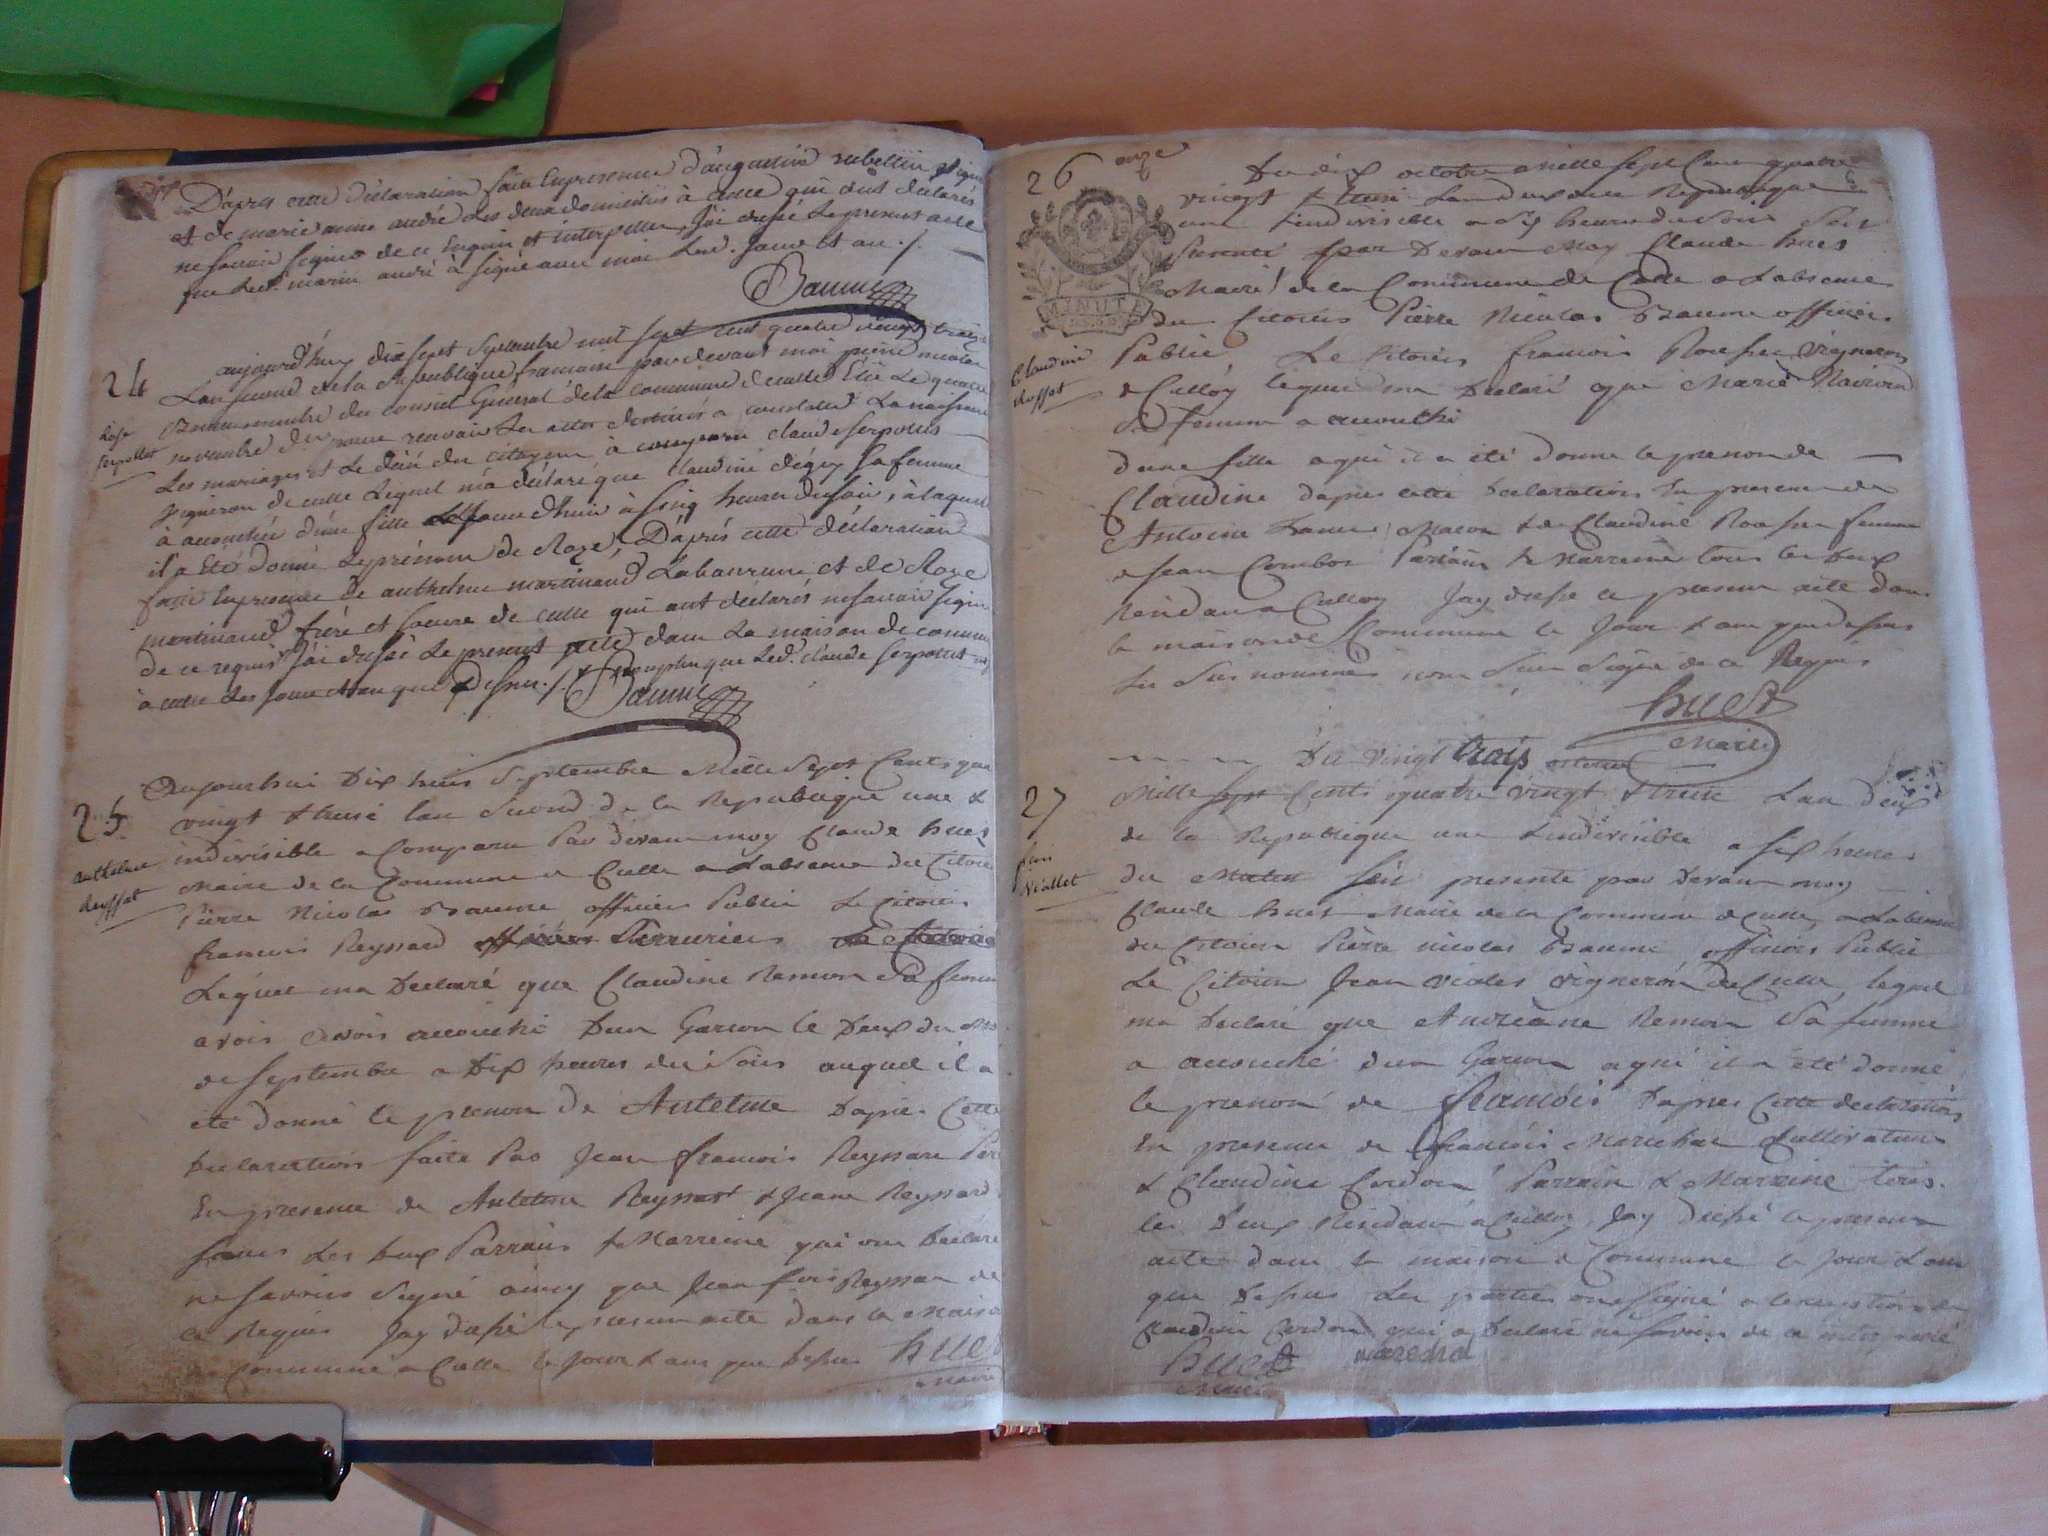 D'après cette déclaration faite en présence d'augustin rubellin
et de marie anne andré les deux domiciliés à culle qui ont déclarés
ne savoir signer de ce enquis et interpellés, j'ai dressé le présent acte
que led. marin andré à signé avec moi led. jour et an ./.
Baume
24
aujourd'huy dix sept Septembre mil sept cent quatre vingt treize
L'an second de la République francaise pardevant moi pierre nicolas
Baume membre du conseil Général de la commune de culle Elû le quatre
novembre dernier pour recevoir les actes destinés a constater La naissance
Les mariages et le décé des citoyens à comparu claude serpollet
Rose
serpollet
vigneron de culle Lequel m'a déclaré que claudine dégey sa femme
à accouchée d'une fille aujourd'huy à sinq heures du soir, à laquelle
il a Eté donné le prénom de Roze, D'après cette déclaration
faite En présence de anthelme martinand et de Roze
martinand frère et soeure de culle qui ont déclarés ne savoir signer
de ce requis j'ai dressé le présent acte dans la maison de commune
à culle les jour et an que dessus ./. claude serpollet
Baume
25
anthelme
Reyssat
Aujourhui Dix huis Septembre Mille Sept Cents quatre
vingt & treise lan Second de la Republique une &
indivisible a Comparu Par devant moy Claude huet
Maire de la Commune de Culle a Labsence du Citoien
Pierre Nicolas Baume officier Public Le Citoien
francois Reyssard Serrurier
Lequel ma Declaré que Claudine Ramon Sa femme
avois avois accouché Dun Garcon le Deux du Mois
de Septembre a Dix heures du Soir auquel il a
eté donné le prenom De Antelme Dapres Cette
Declaration faite Par Jean francois Reyssard Pere
En presence de Antelme Reyssart & Jeane Reyssard
Les deux Parrain & Marreine qui ont declaré
ne Savoir Signé ainsy que Jean fcois Reyssar de
ce Requis Jay dressé le present acte dans la Maison
Commune a Culle le Jour & ans que dessus huet
Maire
26
onze
Du dix octobre Mille Sept Cens quatre
vingt & treise Lan deux de la Republique
une & indivisible a Six heures du Soir Sest
presenté par Devant Moy Claude hues
Maire de la Commune de Culle a Labsence
du Citoien Pierre Nicolas Baume officier
MINUTE
Claudine
Rossat
Public Le Citoien francois Rosset Vigneron
a Culloz lequel ma Declaré que Marie
Sa femme a accouché
dune fille a qui il a été donné le prenom de
Claudine Dapres cette Declaration En presence de
Antoine Macon & de Claudine femme
a Jean Parrain & Marreine tous les deux
Residans a Culloz Jay dressé le present acte dans
la maison de Commune le Jour & an que dessus
les Sus nommés nont Sceu Signé de ce Requis
huet
Maire
Du vingt trois octobre
27
Mille Sept Cents quatre vingt & treise Lan deux
de la Republique une & indivisible a Six heures
Viallet
du Matin Sest presenté par Devant moy
Claude huet Maire de la Commune de Culle a Labsence
du Citoien Pierre nicolas Baume officier Public
Le Citoien Jean vialet vigneron de Culle lequel
ma Declaré que Remon Sa femme
a accouché dun Garcon a qui il a eté donné
le prenom de francois Dapres Cette declaration
En presence de francois Marechal Cultivateur
& Claudine Cordon Parrain & Marraine tous
les deux Residant a Culloz, Jay dressé le present
acte dans la maison de Commune le Jour & an
que Dessus Les parties ont Signé a lexception de
Claudine Cordon qui a Declaré ne Savoir de ce
huet marechal
Maire